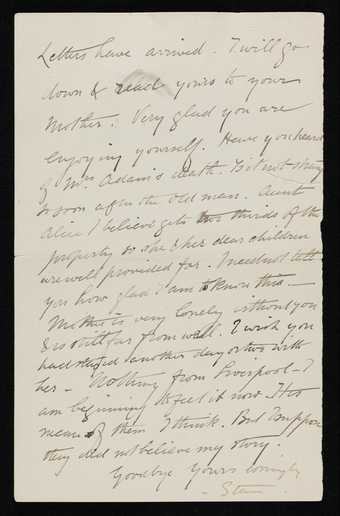 Letters have arrived. I will go
down & read yours to your
Mother. Very glad you are
enjoying yourself. Have you heard
of Mrs Adams's death. Is it not strange
so soon after the old man. Aunt
Alice I believe gets two thirds of the
property so she & her dear children
are well provided for. I need not tell
you how glad I am to know this. —
Mother is very lonely without you
& is still far from well. I wish you
had stayed another day or two with
her — Nothing from Liverpool — I
am beginning to feel it now. It is
mean of them I think. But I suppose
they did not believe my story.
Goodbye Yours lovingly